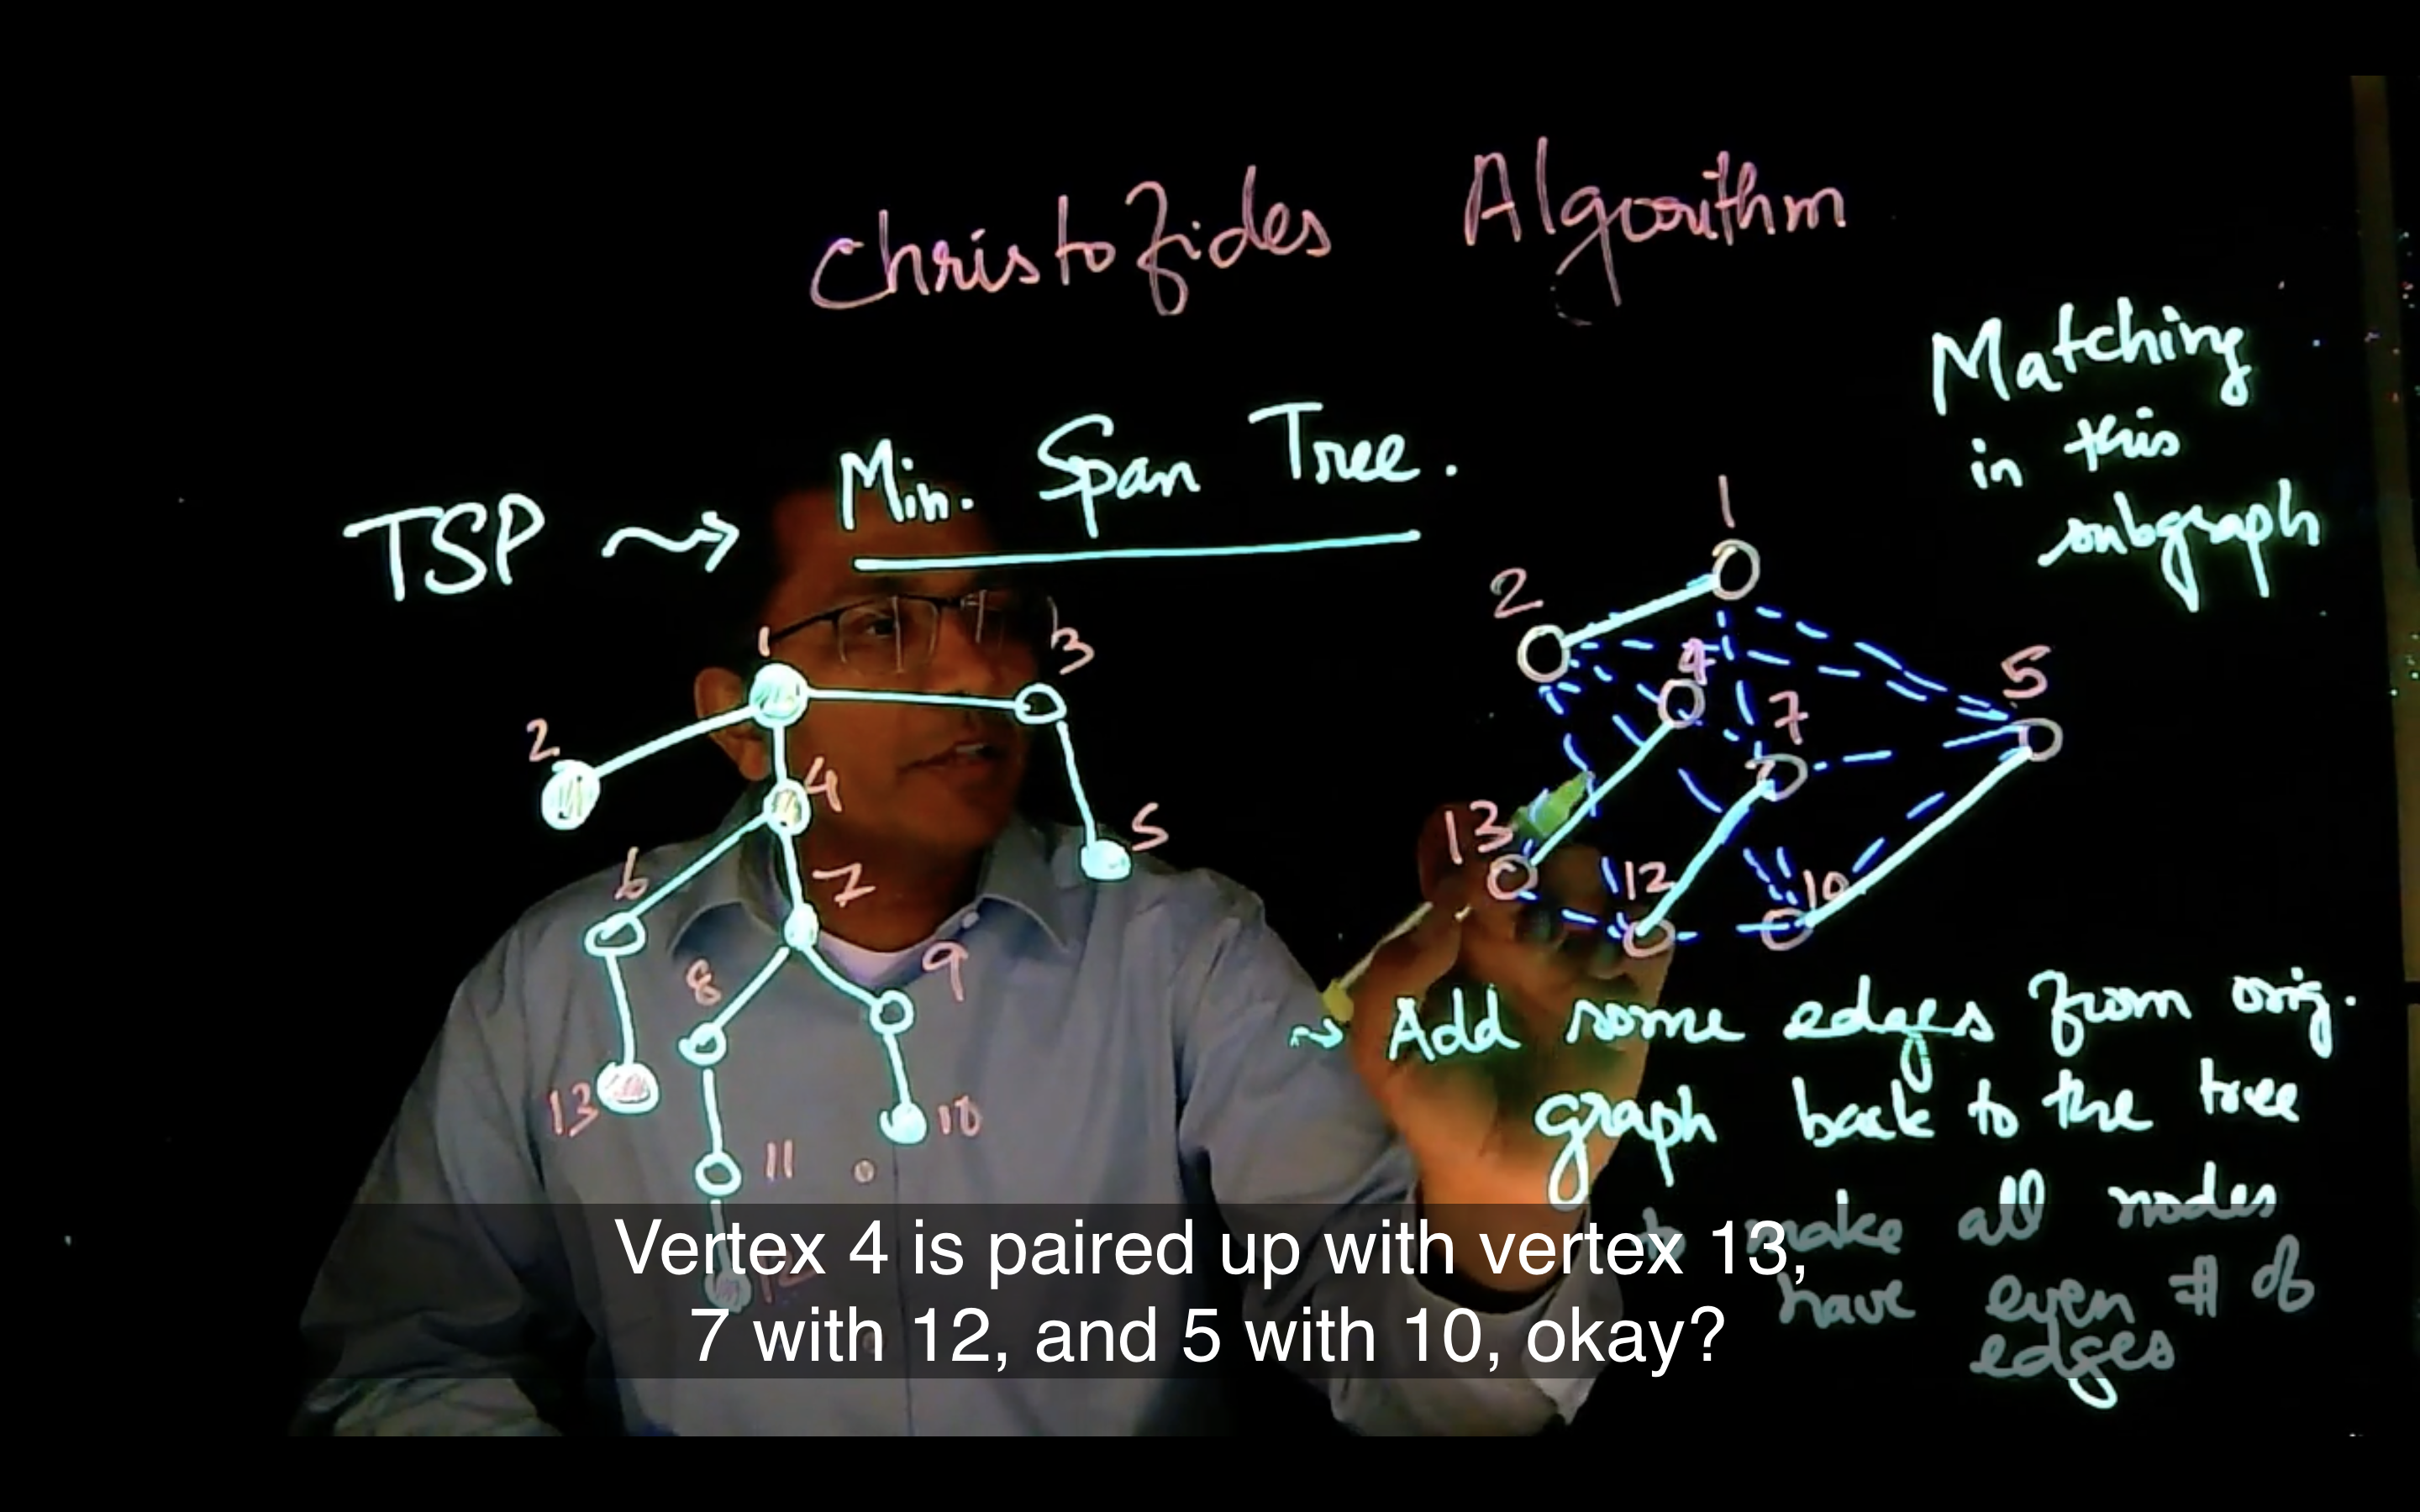 Christofides Algorithm
TSP ⇝ Min. Span Tree.
Matching
in this
subgraph
1
2
3
4
5
6
7
8
9
10
11
12
13
1
2
4
5
7
13
12
10
⇝ Add some edges from orig.
graph back to the tree
to make all nodes
have even # of
edges
Vertex 4 is paired up with vertex 13,
7 with 12, and 5 with 10, okay?